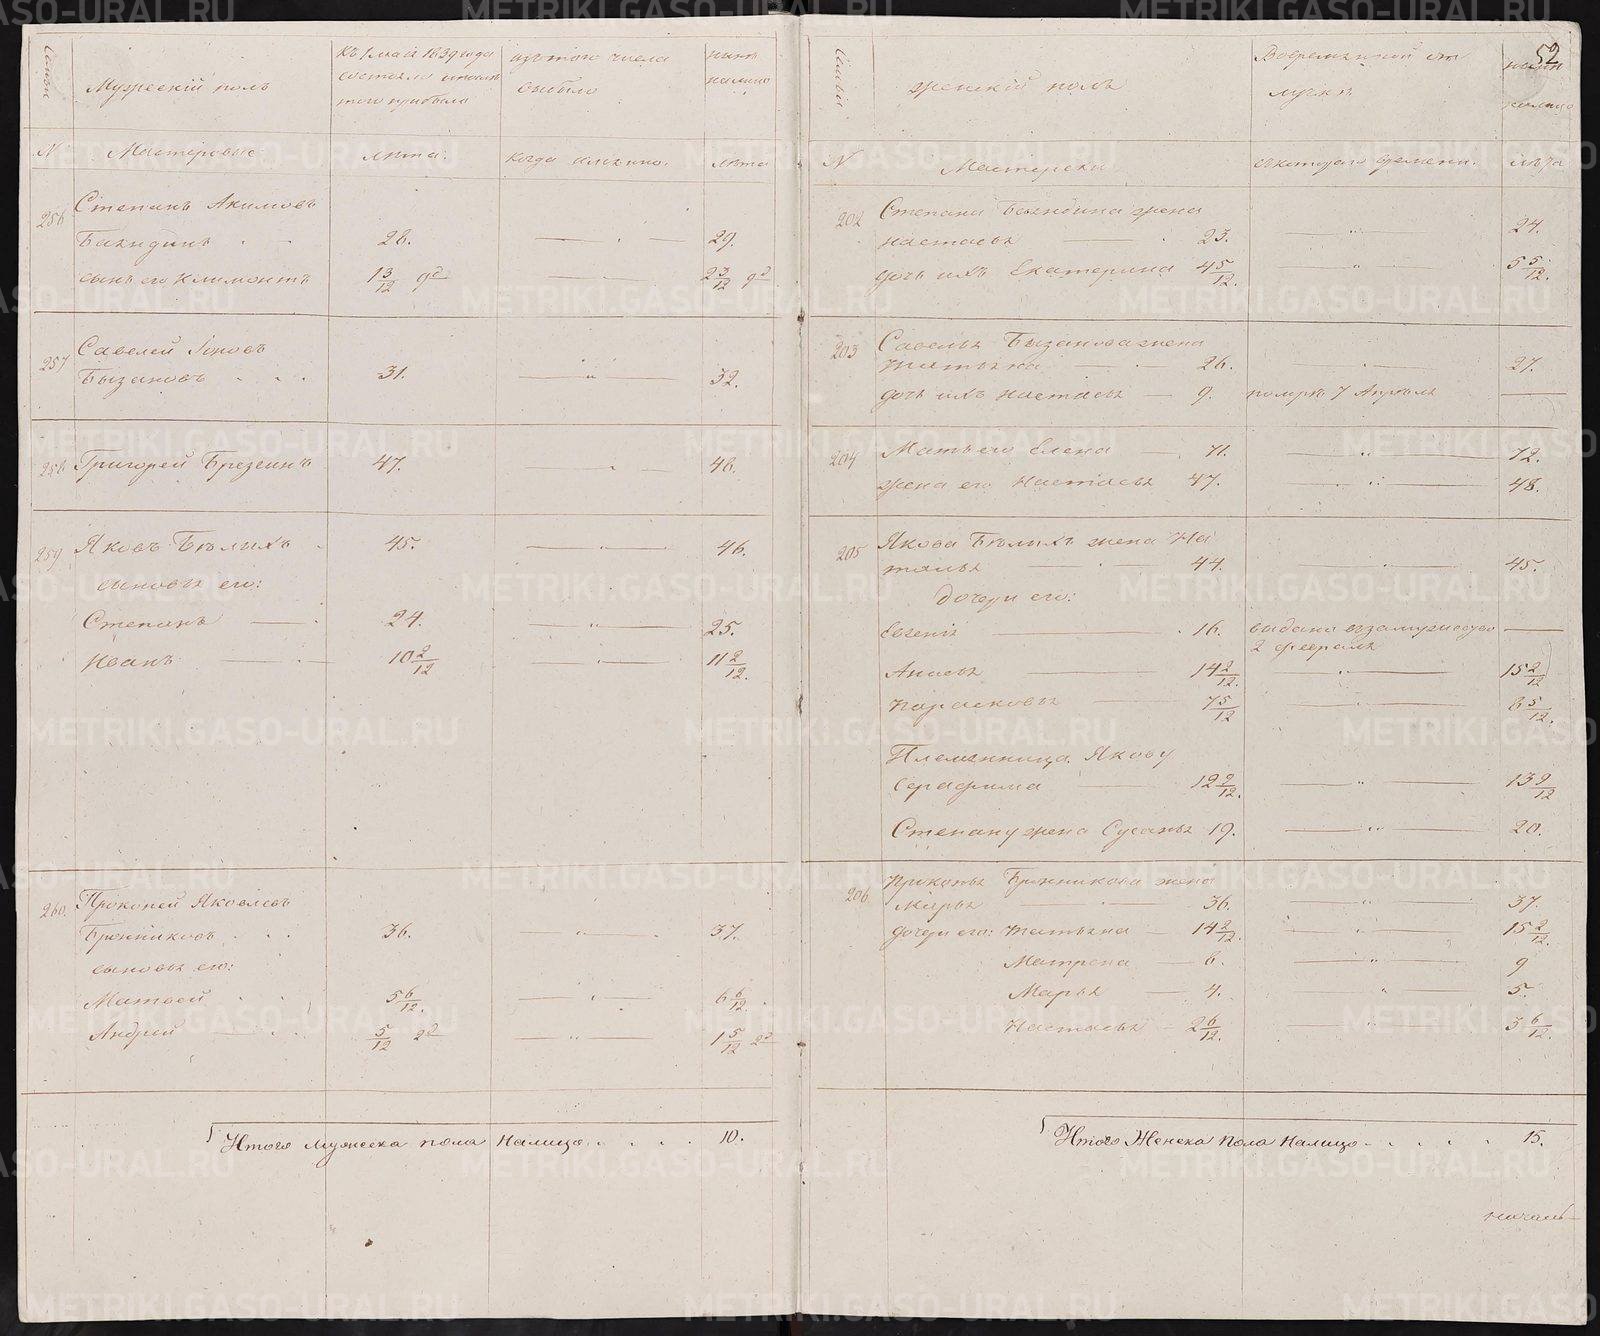 52
Мужескій полъ
Къ 1 мая 1839 года
состояло и после
того прибыло
изъ того числа
выбыло
ныне
на лицо
№
Мастеровые
лѣта.
когда именно.
лѣта
256
Степанъ Акимовъ
28.
29.
сынъ его Климонтъ
1 3/12
2 3/12
257
Савелей
Бызановъ
31.
32.
258
Григорей Брезгинъ
47.
48.
259
Яковъ Бѣлихъ
45.
46.
сыновья его:
Степанъ
24.
25.
Иванъ
10 2/12
11 2/12
260.
Прокопей Яковлевъ
36.
37.
сыновья его:
Матвей
5 6/12.
6 6/12.
Андрей
5/12
1 5/12
Итого мужеска пола налицо . . . . 10.
женскій полъ
№
Мастерски
съ котораго времени.
лѣта
202
Степана жена
Настасья
23.
24.
дочь ихъ Екатерина
4 5/12.
5 5/12.
203
Савелья Бызанова жена
Татьяна
26.
27.
дочь ихъ Настасья
9.
померла 7 Апреля
204
Мать его Елена
71.
72.
жена его Настасья
47.
48.
205
Якова Бѣлихъ жена На
талья
44.
45.
Дочери его:
Евгения
16.
выдана въ замужество
2 февраля
14 2/12.
15 2/12
Парасковья
7 5/12
8 5/12.
Племянница Якову
Серафима
12 9/12.
13 9/12
Степану жена Сусанья 19.
20.
206
Прокопья жена
Марья
36.
37.
дочери его: Татьяна
14 2/12.
15 2/12.
Матрена
8.
9
Марья
4.
5.
Настасья
2 6/12.
3 6/12.
Итого Женска пола налицо . . . . . 15.
METRIKI.GASO-URAL.RU